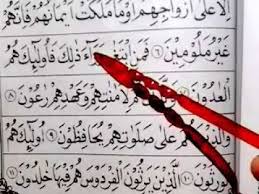 إِلَّا عَلَىٰٓ أَزْوَٰجِهِمْ أَوْ مَا مَلَكَتْ أَيْمَٰنُهُمْ فَإِنَّهُمْ
غَيْرُ مَلُومِينَ ٦ فَمَنِ ٱبْتَغَىٰ ذَٰلِكَ فَأُو۟لَٰٓئِكَ هُمُ
ٱلْعَادُونَ ٧ لِأَمَٰنَٰتِهِمْ وَعَهْدِهِمْ رَٰعُونَ ٨
وَٱلَّذِينَ هُمْ عَلَىٰ صَلَوَٰتِهِمْ يُحَافِظُونَ ٩ أُو۟لَٰٓئِكَ هُمُ
ٱلْوَٰرِثُونَ ١٠ ٱلَّذِينَ يَرِثُونَ ٱلْفِرْدَوْسَ هُمْ فِيهَا خَٰلِدُونَ ١١